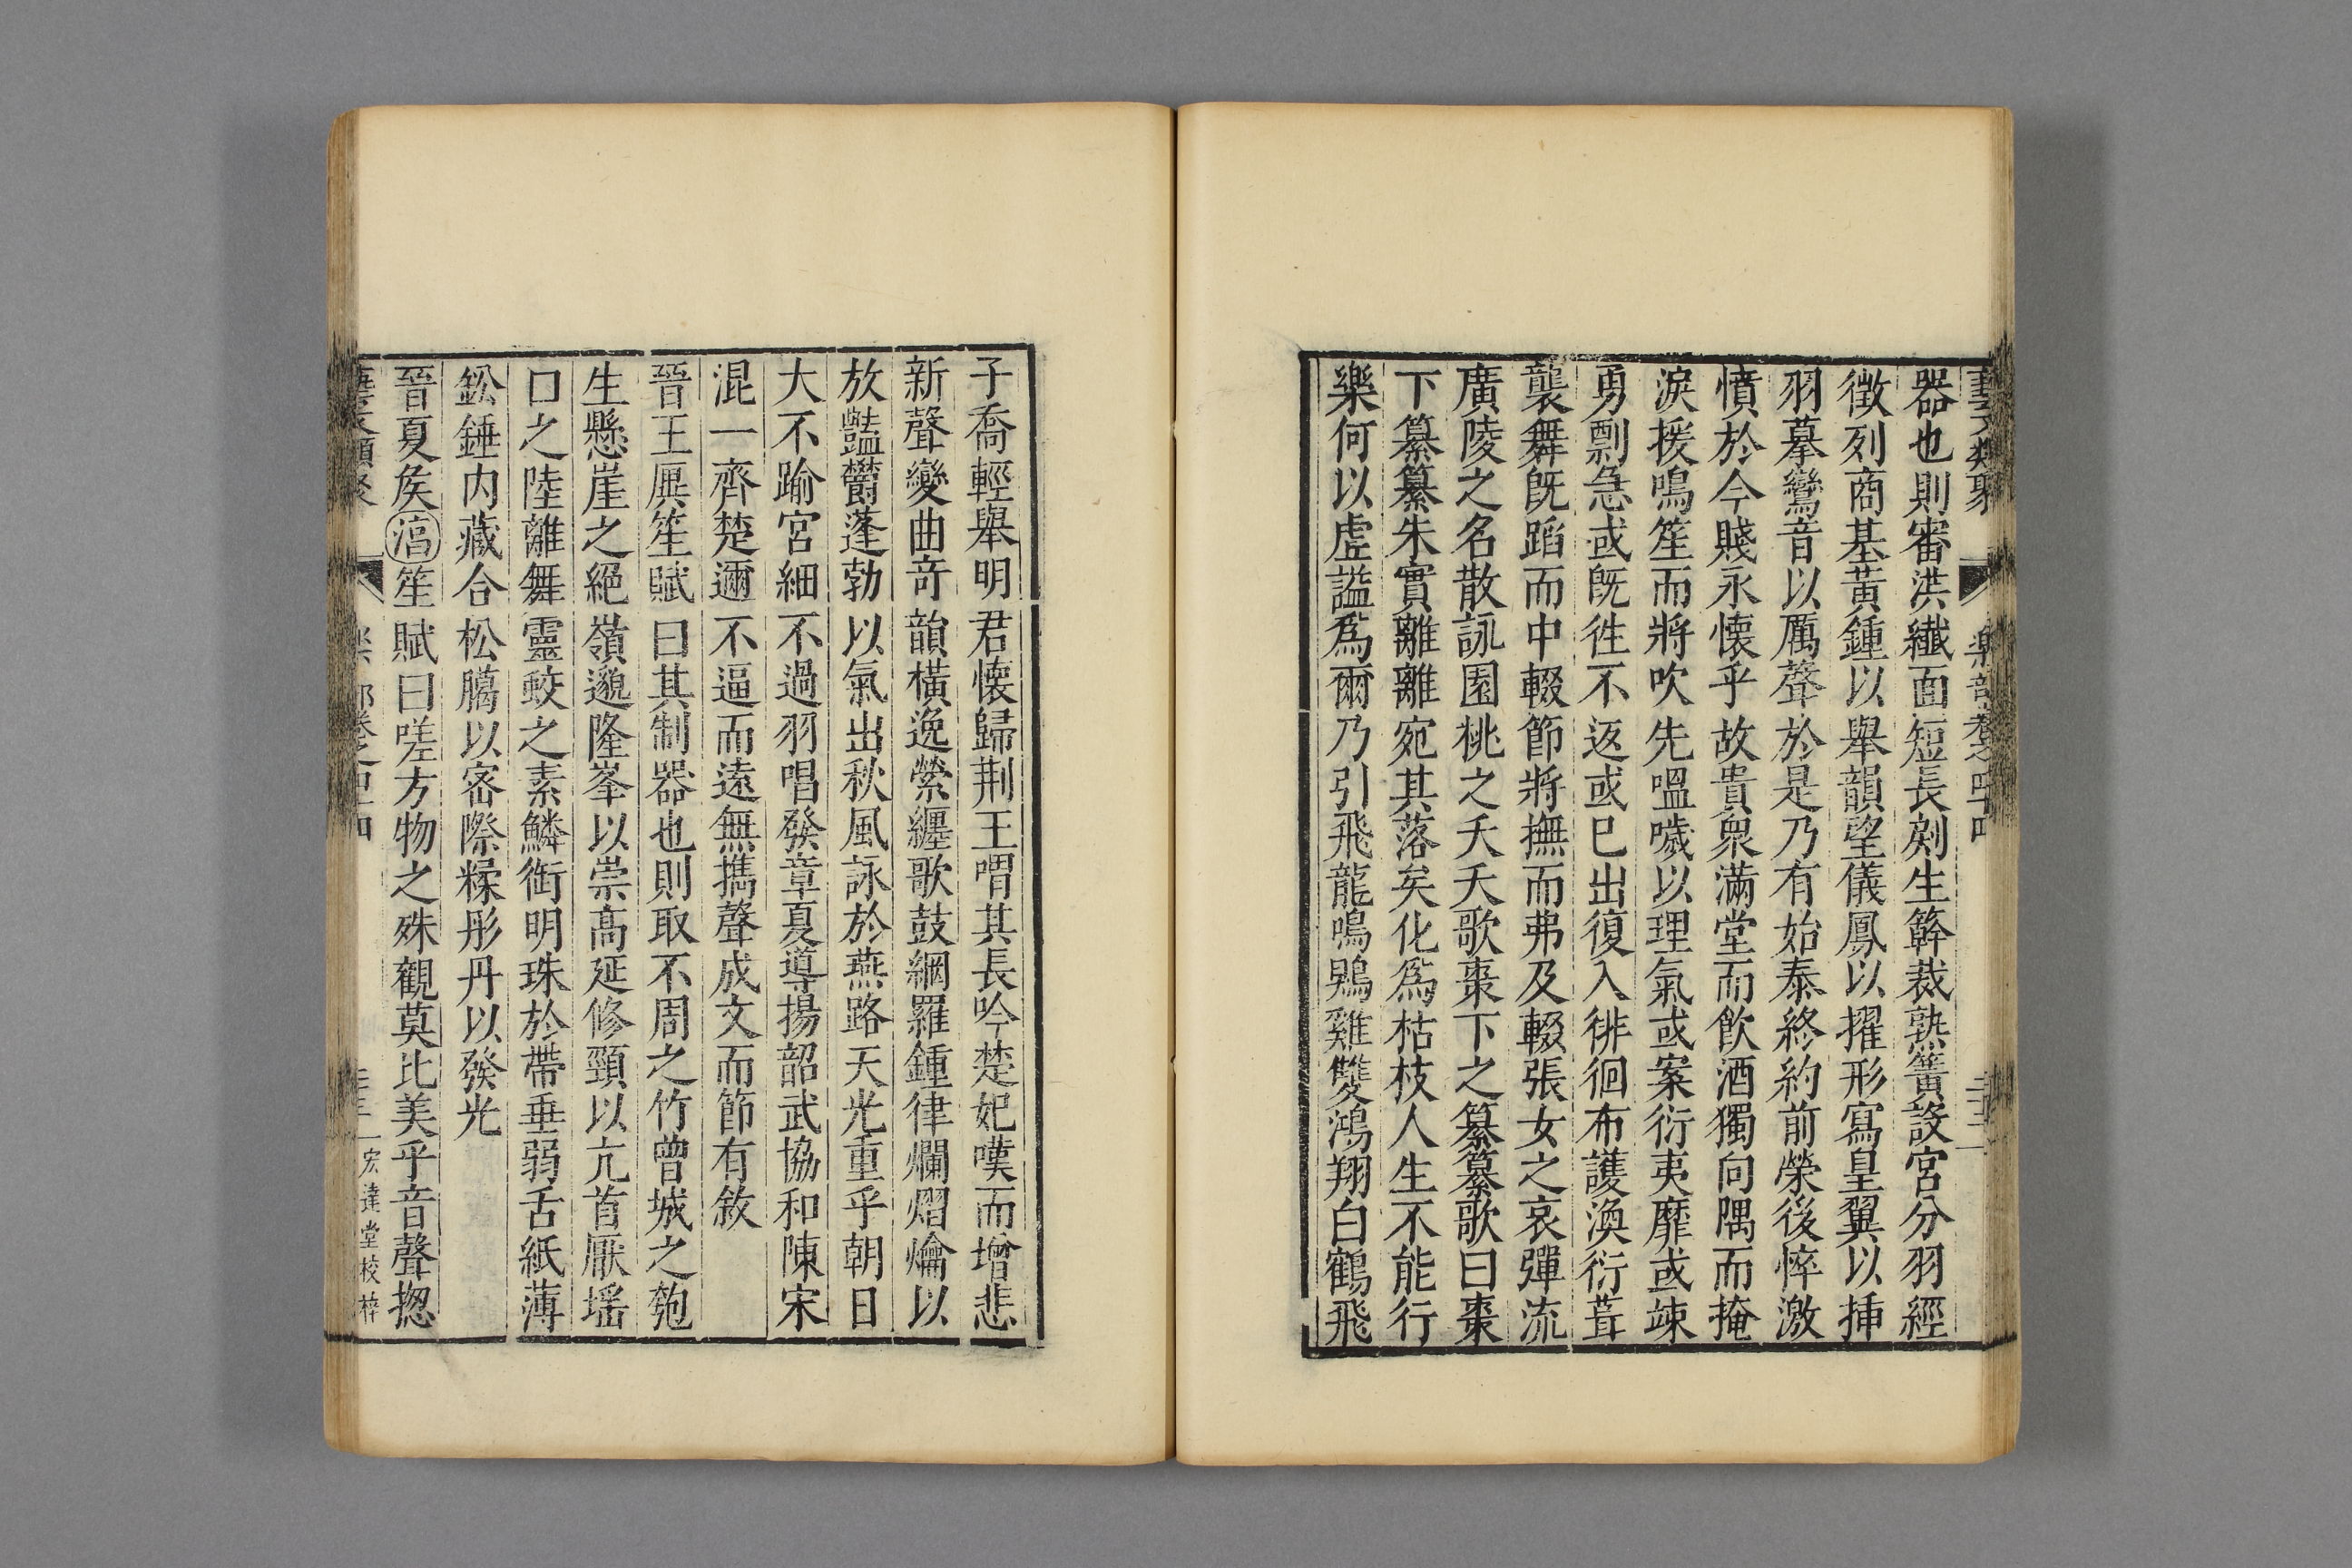 器也則審洪纖面短長剡生簳裁熟簧設宮分羽經
徵列商基黃鍾以舉韻望儀鳳以擢形寫皇翼以插
羽摹鸞音以厲聲於是乃有始泰終約前榮後悴激
憤於今賤永懷乎故貴衆滿堂而飲酒獨向隅而掩
淚援鳴笙而將吹先嗢噦以理氣或案衍夷靡或竦
勇剽急或旣徃不返或巳出復入徘徊布護渙衍葺
襲舞旣蹈而中輟節將撫而弗及輟張女之哀彈流
廣陵之名散詠園桃之夭夭歌棗下之纂纂歌曰棗
下纂纂朱實離離宛其落矣化爲枯枝人生不能行
樂何以虛謚爲爾乃引飛龍鳴鵾雞雙鴻翔白鶴飛
子喬輕舉明君懷歸荆王喟其長吟楚妃嘆而增悲
新聲變曲奇韻橫逸縈纏歌鼓網羅鍾律爛熠爚以
放豔欝蓬勃以氣出秋風詠於燕路天光重乎朝日
大不踰宮細不過羽唱發章夏導揚韶武協和陳宋
混一齊楚邇不逼而遠無擕聲成文而節有敘
晉王廙笙賦曰其制器也則取不周之竹曾城之匏
生懸崖之絕嶺邈隆峯以崇高延修頸以亢首厭瑤
口之陸離舞靈蛟之素鱗銜明珠於帶垂弱舌紙薄
鈆錘内藏合松臈以密際糅彤丹以發光
晉夏矦湻笙賦曰嗟方物之殊觀莫比美乎音聲揔
宏達堂校梓